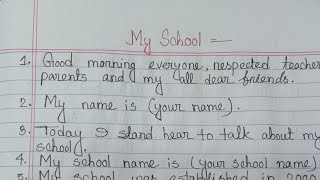 My School :—
1. Good morning everyone, respected teacher
parents and my all dear friends.
2. My name is (your name).
3. Today I stand hear to talk about my
school.
4. My school name is (your school name)
5. My school was established in 2000